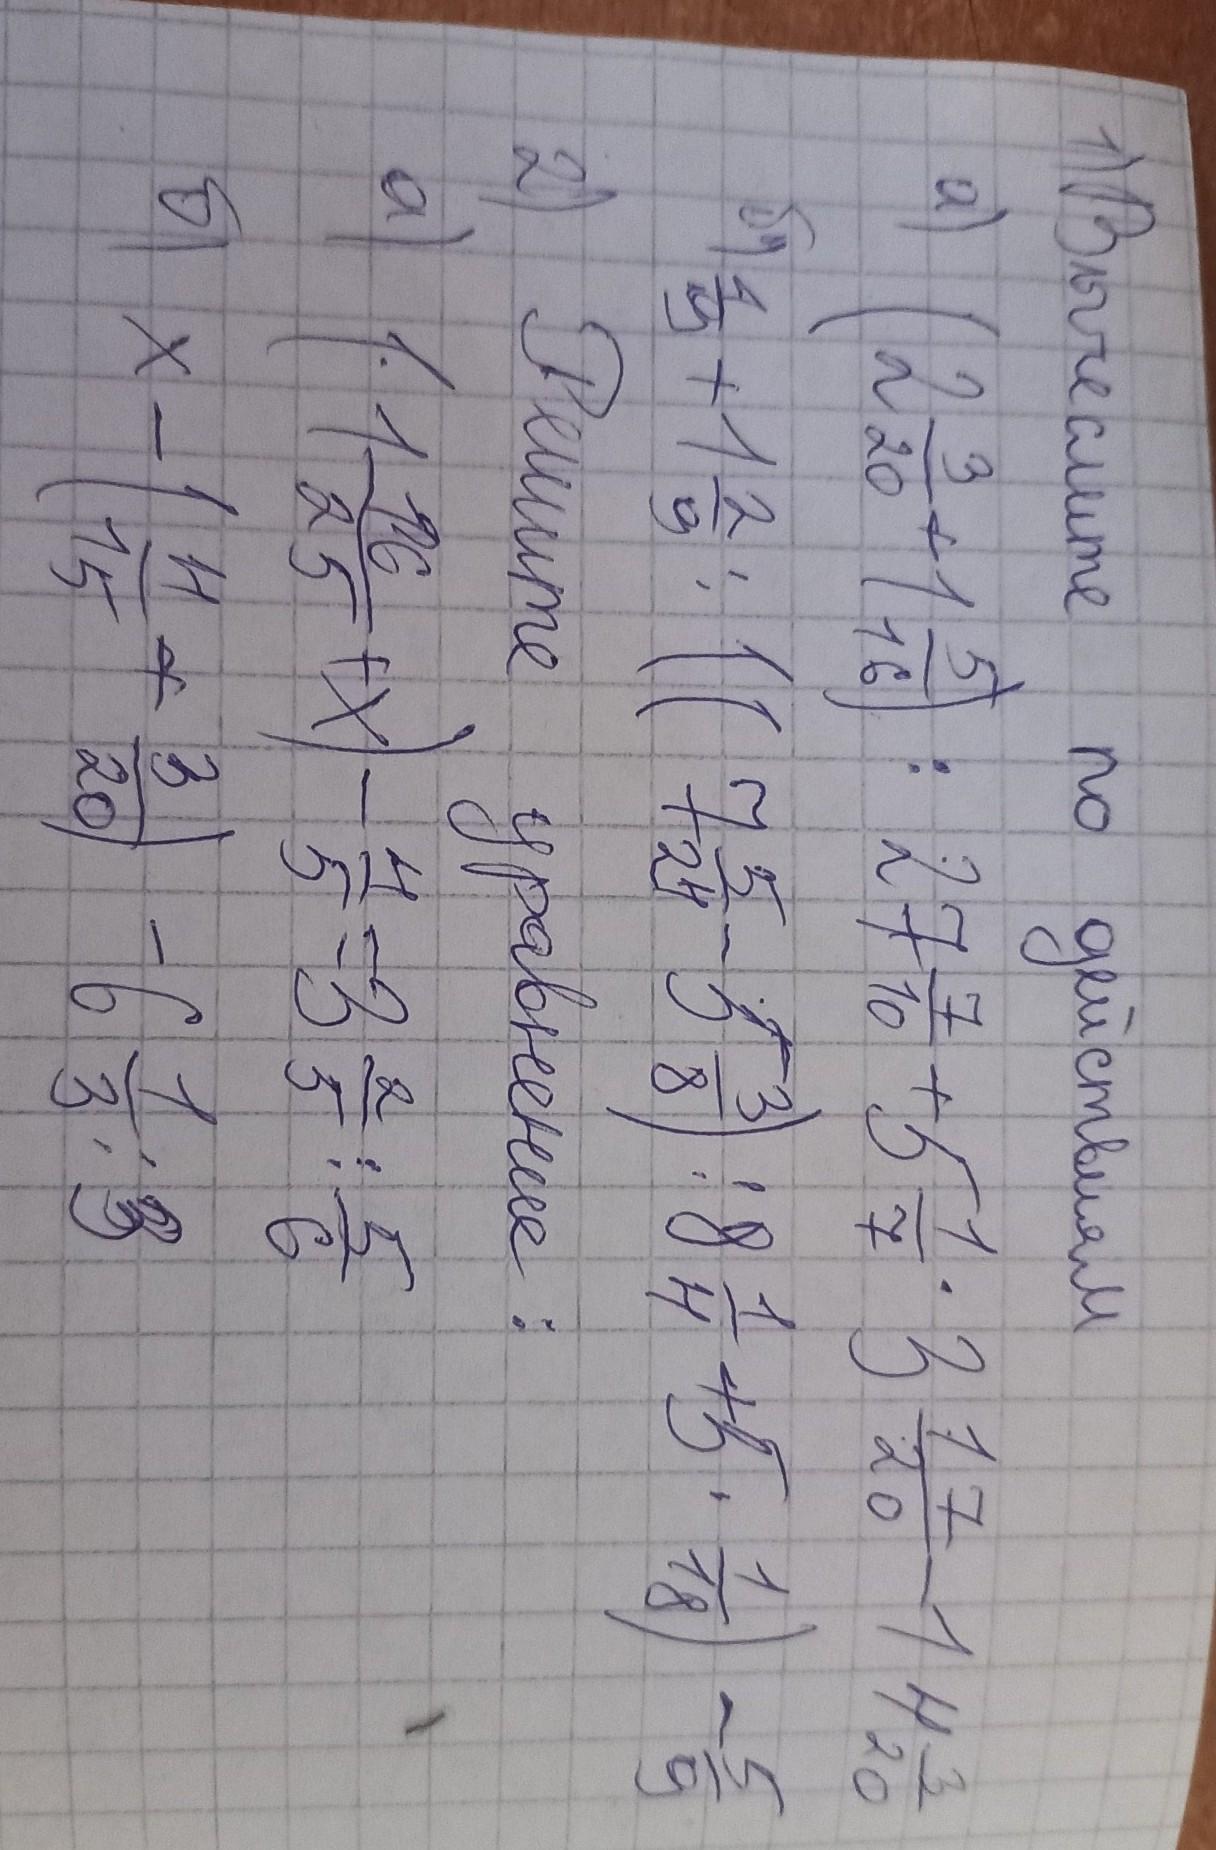 1) Вычеслите по действиям
а) (2 3/20 + 1 5/16) : 27 7/10 + 5 1/7 · 3 17/20 - 14 3/20
б) 1/9 + 1 2/9 : ((7 5/24 - 5 3/8) : 8 1/4 + 5 · 1/18) - 5/9
2) Решите уравнение :
а) (1 16/25 + x) - 4/5 = 3 2/5 : 5/6
б) x - (4/15 + 3/20) - 6 1/3 : 3